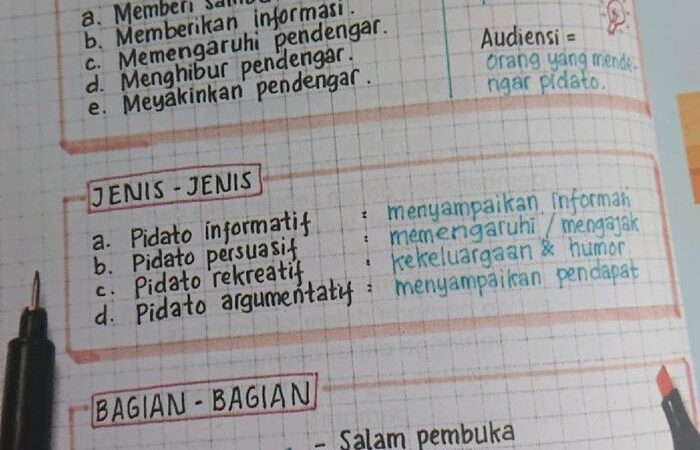 a. Memberi
b. Memberikan informasi.
c. Memengaruhi pendengar.
d. Menghibur pendengar.
e. Meyakinkan pendengar.
Audiensi =
orang yang mende-
ngar pidato.
JENIS - JENIS
a. Pidato informatif : menyampaikan informasi
b. Pidato persuasif : memengaruhi / mengajak
c. Pidato rekreatif : kekeluargaan & humor
d. Pidato argumentatif : menyampaikan pendapat
BAGIAN - BAGIAN
- Salam pembuka